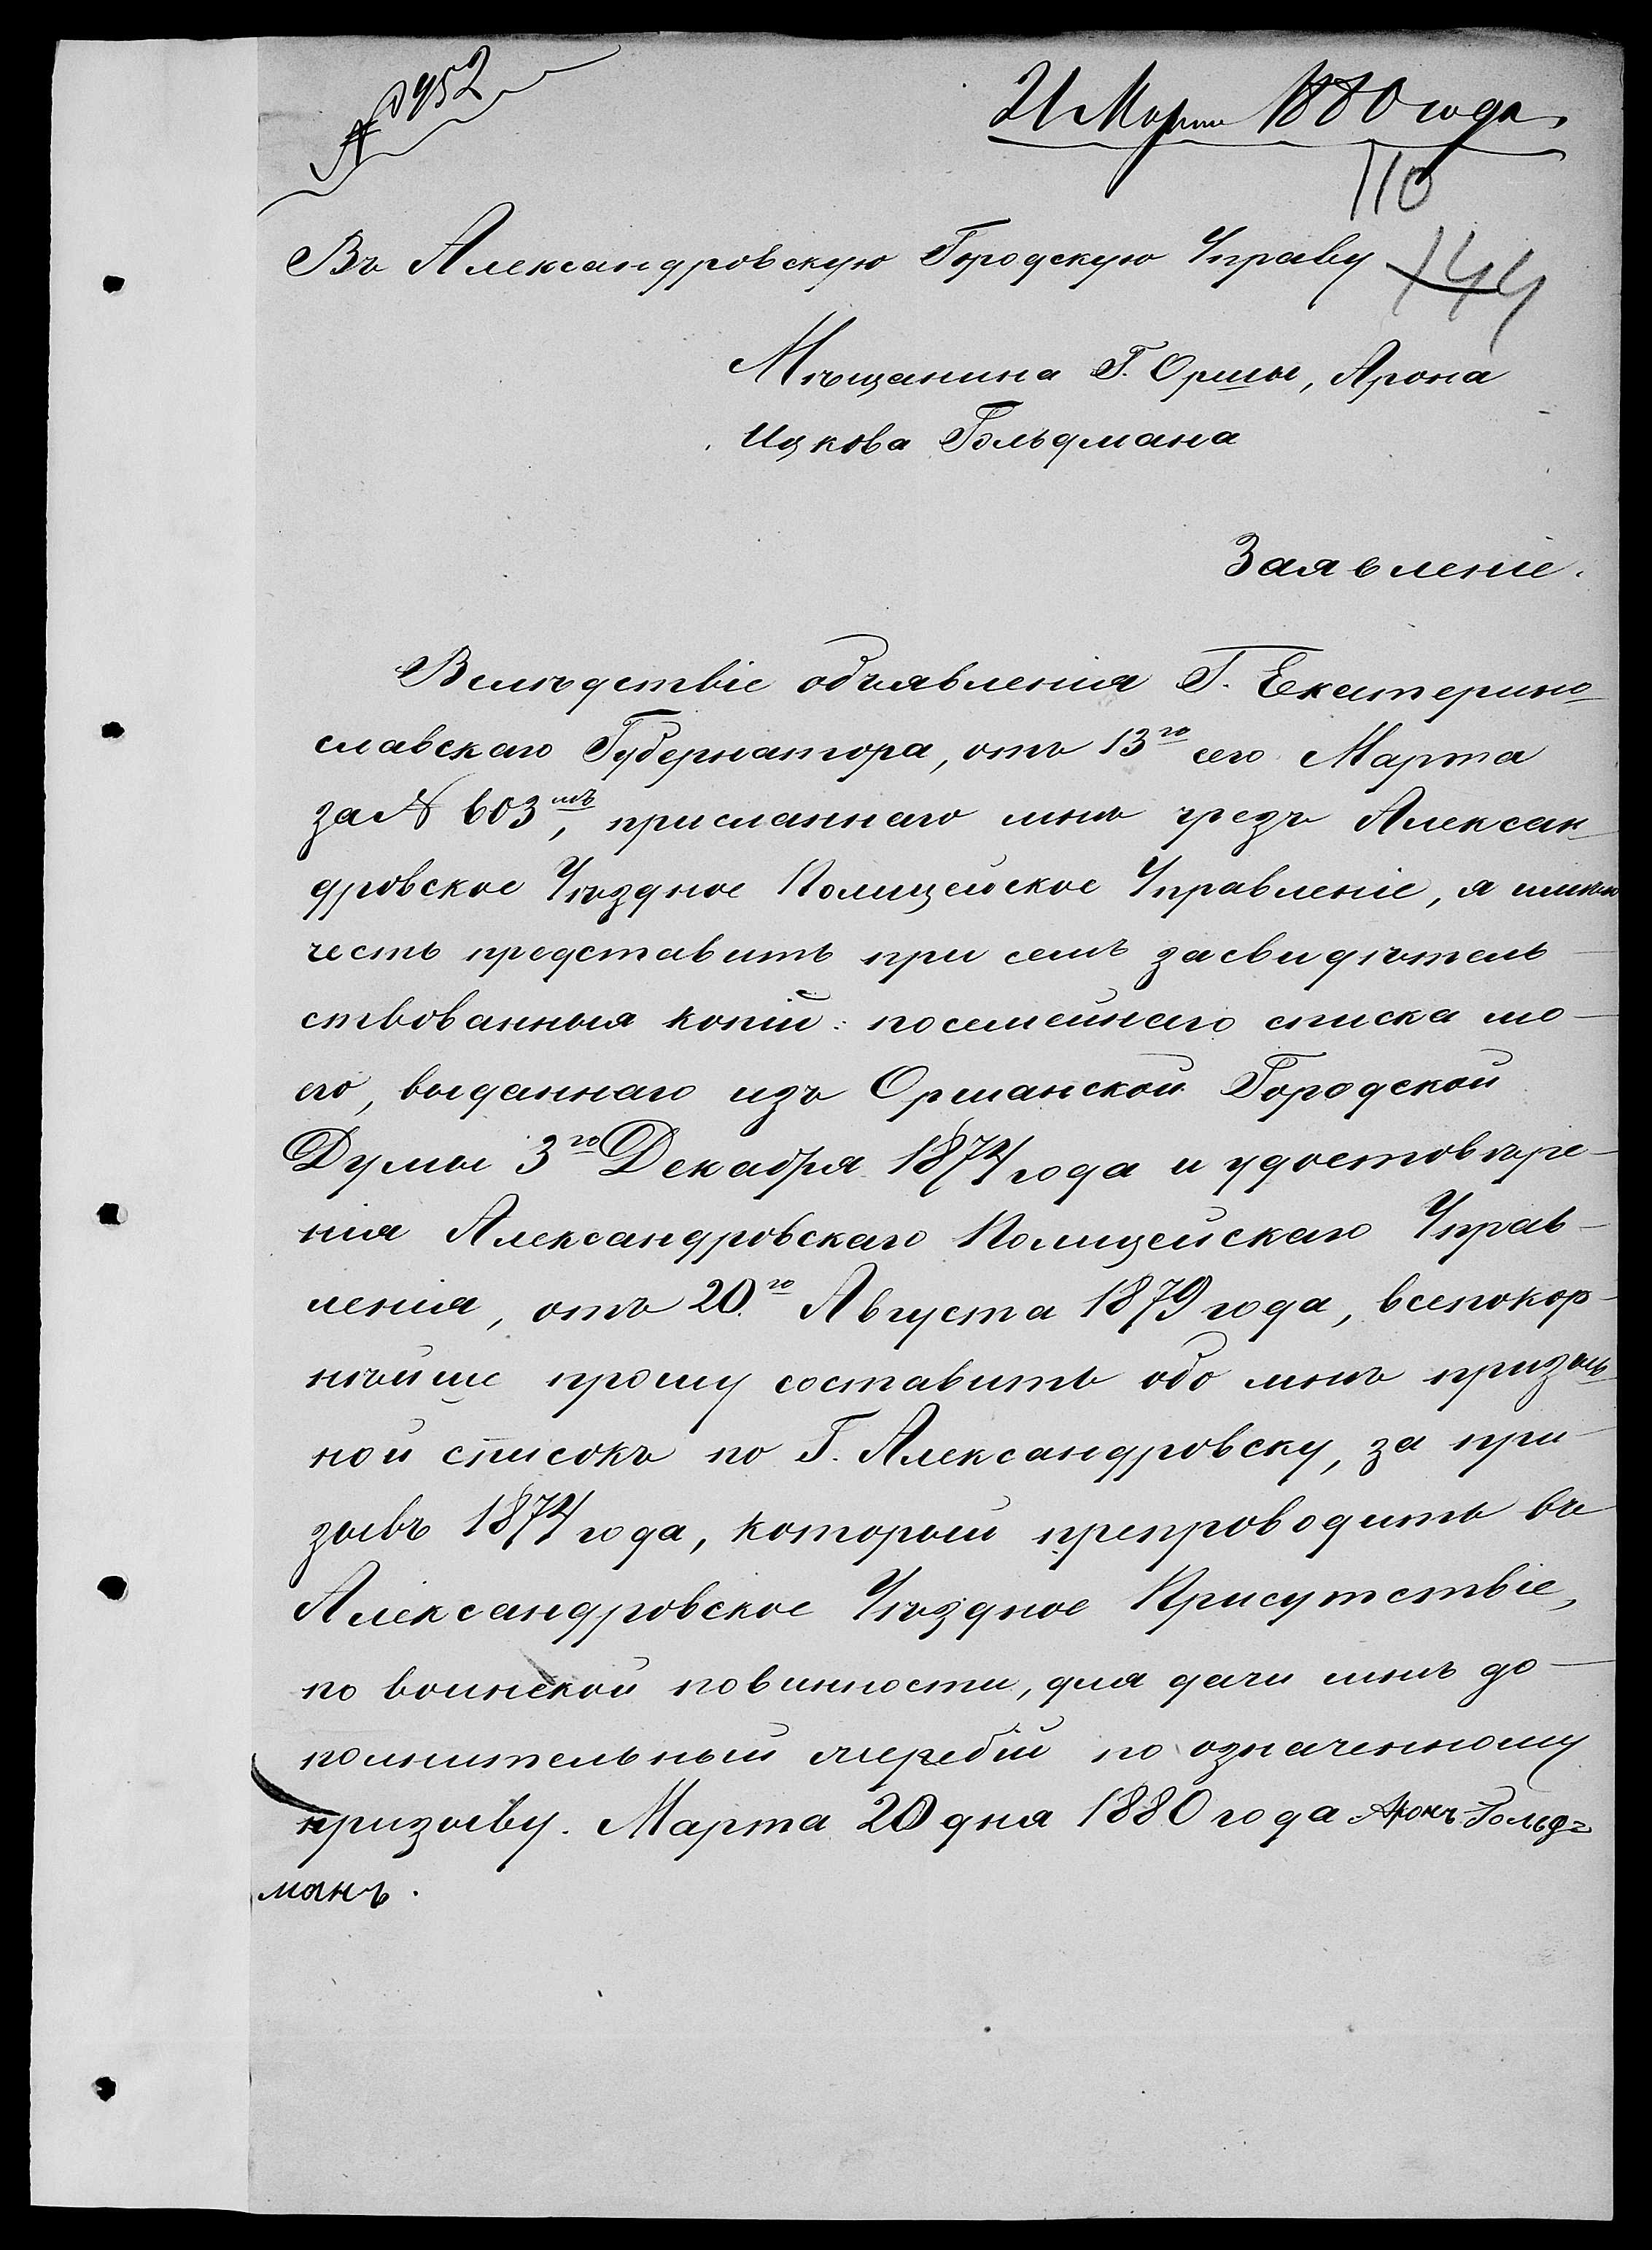 № 952
21 Марта 1880 года
110
144
Въ Александровскую Городскую Управу
Мѣщанина Г. Орши, Арона
Ицкова Гольдмана
Заявленіе.
Вслѣдствіе объявленія Г. Екатерино-
славскаго Губернатора, отъ 13го сего Марта
за № 603мъ, присланнаго мнѣ чрезъ Алексан-
дровское Уѣздное Полицейское Управленіе, я имѣю
честь представить при семъ засвидѣтель-
ствованныя копіи: посемейнаго списка мо-
его, выданнаго изъ Оршанской Городской
Думы 3го Декабря 1874 года и удостовѣре-
нія Александровскаго Полицейскаго Управ-
ленія, отъ 20го Августа 1879 года, всепокор-
нѣйше прошу составить обо мнѣ призыв-
ной списокъ по Г. Александровску, за при-
зывъ 1874 года, который препроводить въ
Александровское Уѣздное Присутствіе,
по воинской повинности, для дачи мнѣ до-
полнительный жеребій по означенному
призыву. Марта 20 дня 1880 года Аронъ Гольд=
манъ.